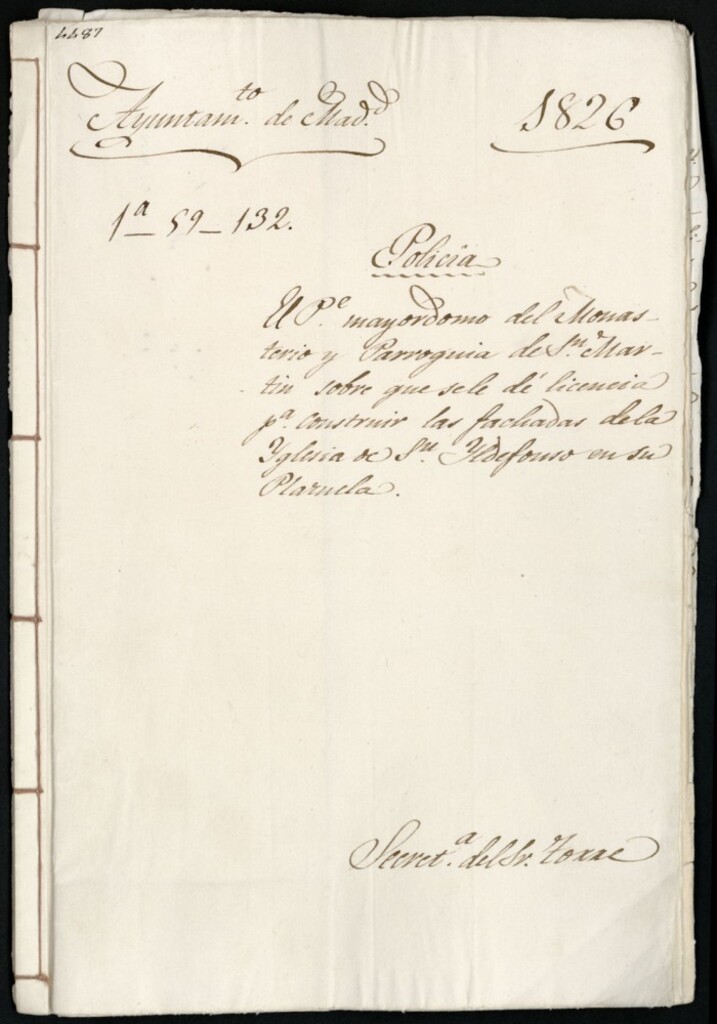 4487
Ayuntam.to de Mad.d
1826
1a 59-132.
Policia
El P.e mayordomo del Monas-
terio y Parroquia de S.n Mar-
tin sobre que sele dé licencia
pa. construir las fachadas dela
Yglesia de S.n Yldefonso en su
Plazuela.
Secret.a del Sr. Torre